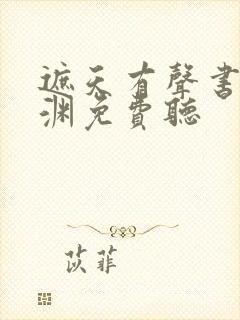 遮天有聲書
淵免費聽
苡菲